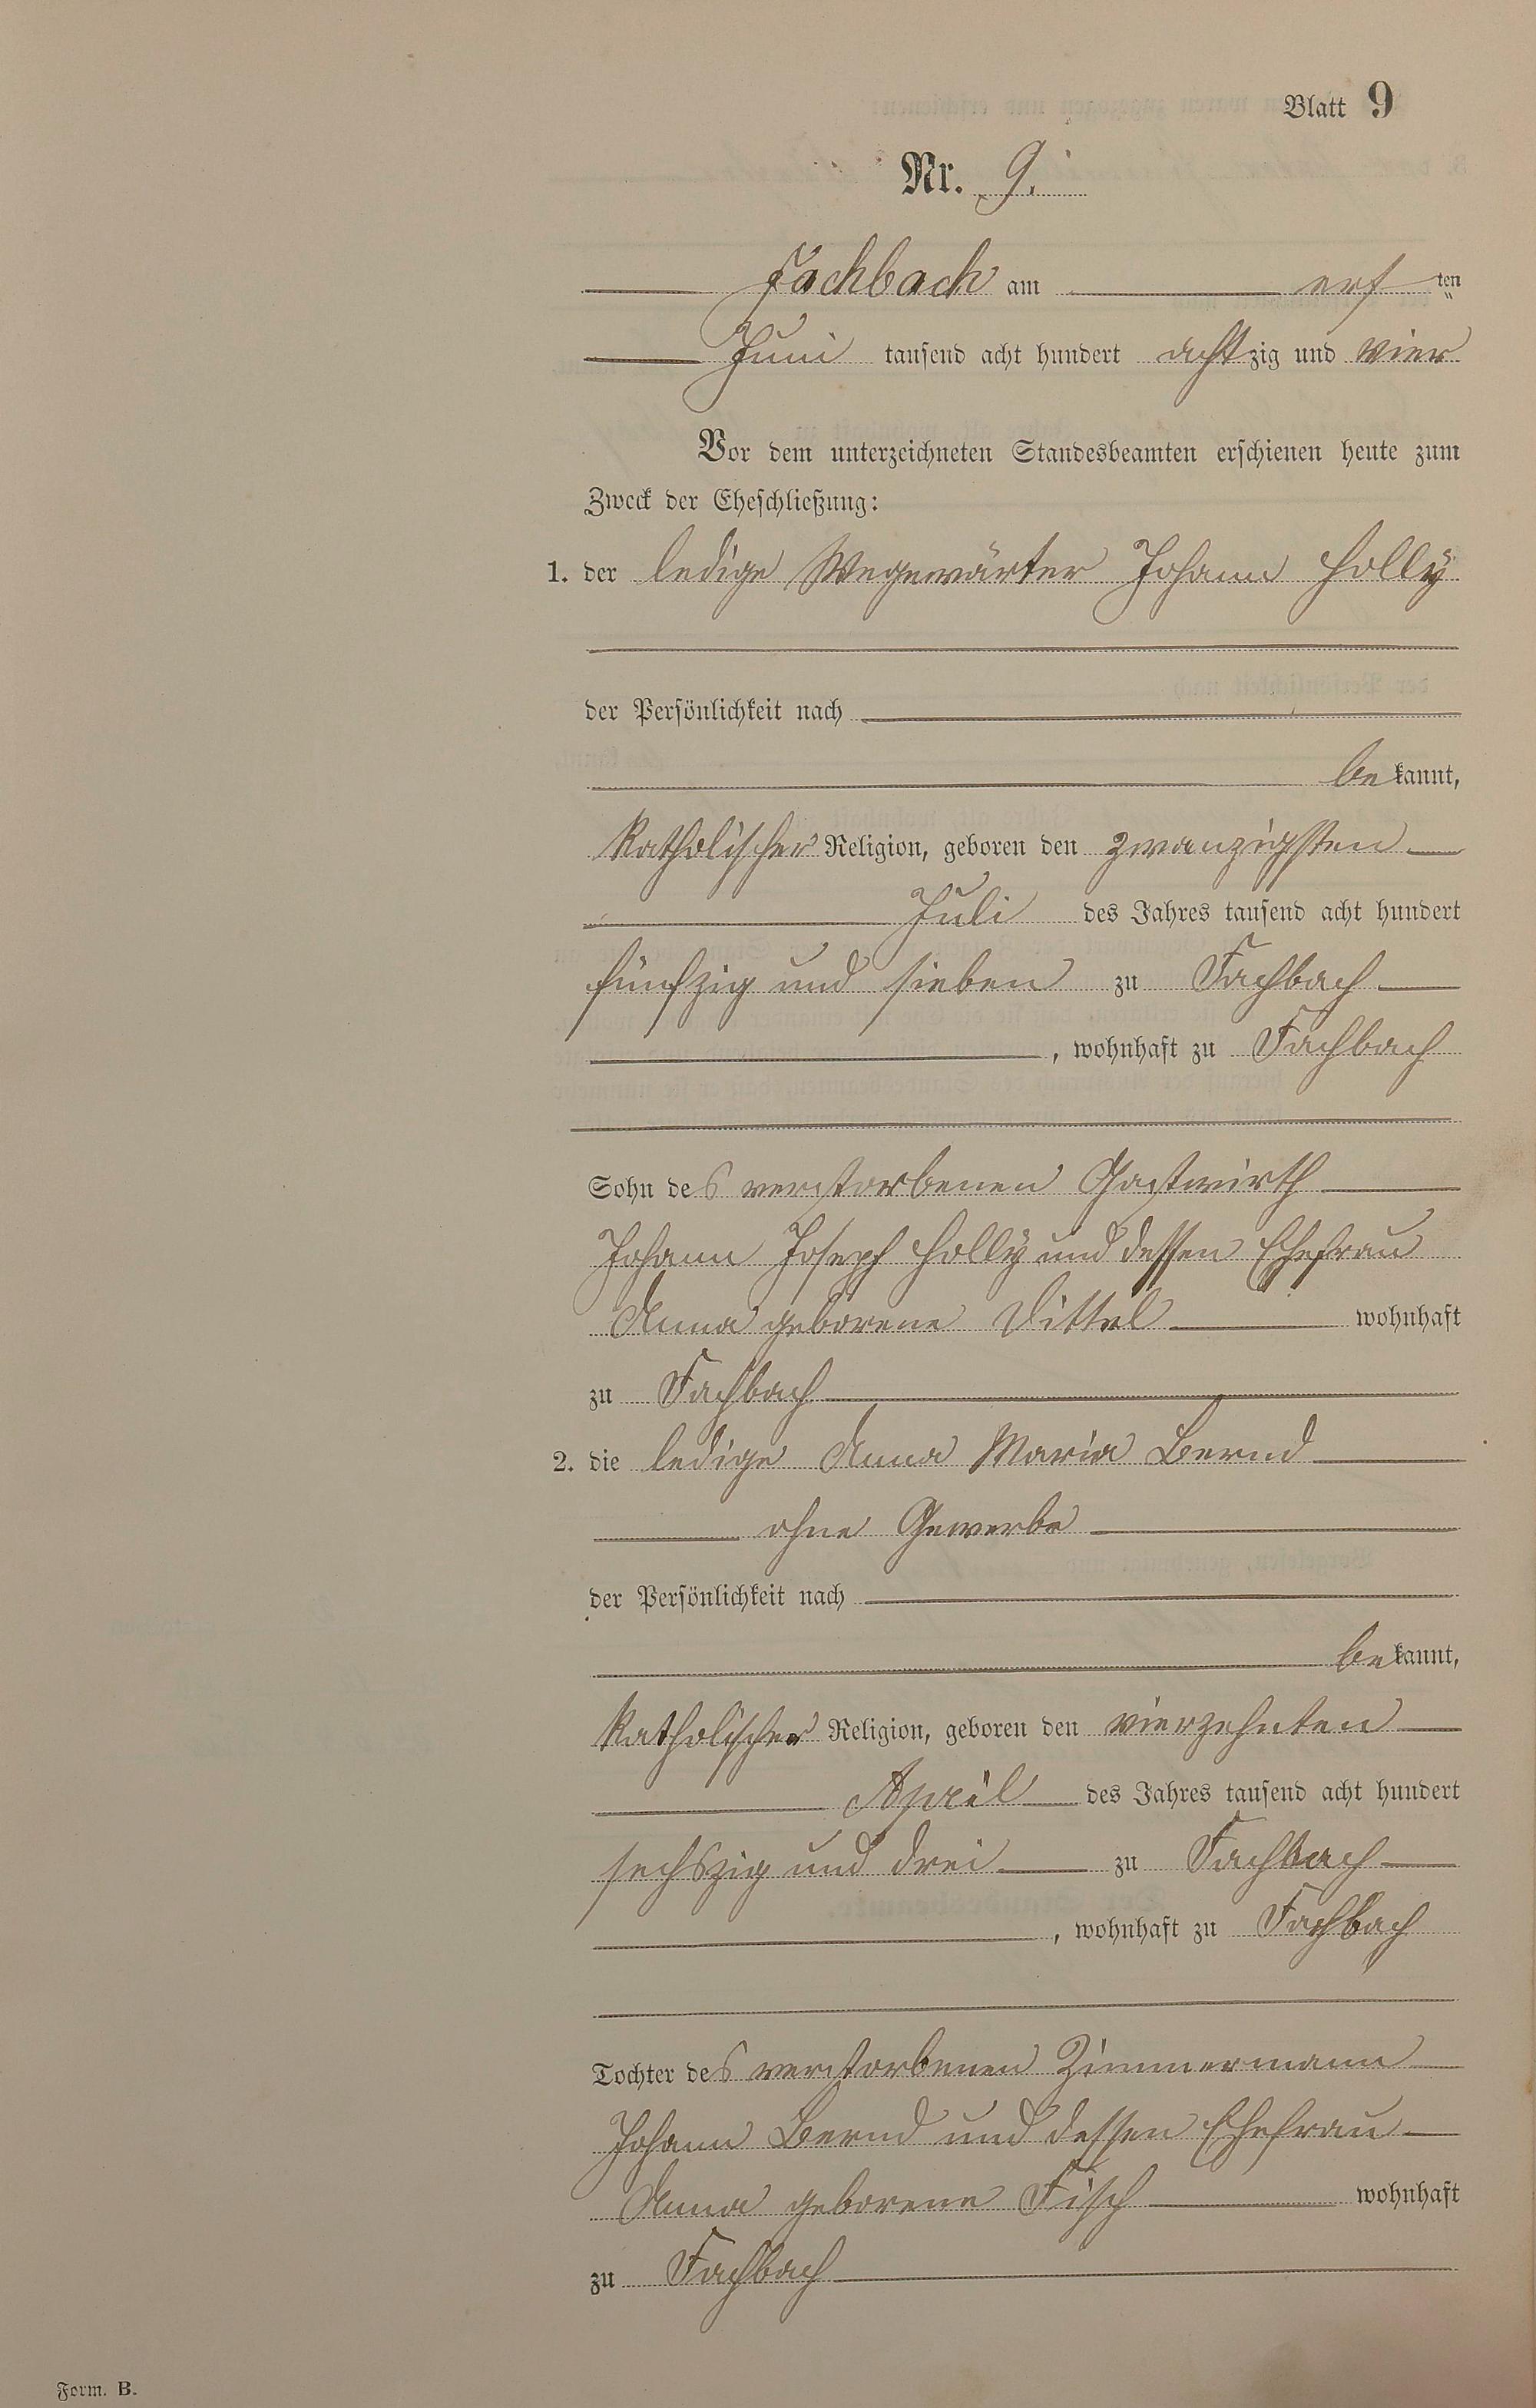 Blatt 9
Nr. 9.
Fachbach am ersten
Juni tausend acht hundert achtzig und vier
Vor dem unterzeichneten Standesbeamten erschienen heute zum
Zweck der Eheschließung:
1. der ledige Wegewärter Johann Holly
der Persönlichkeit nach
bekannt,
katholischer Religion, geboren den zwanzigsten
Juli des Jahres tausend acht hundert
fünfzig und sieben zu Fachbach
, wohnhaft zu Fachbach
Sohn des verstorbenen Gastwirth
Johann Joseph Holly und dessen Ehefrau
Anna geborene Dittel wohnhaft
zu Fachbach
2. die ledige Anna Maria Bernd
ohne Gewerbe
der Persönlichkeit nach
bekannt,
katholischer Religion, geboren den vierzehnten
April des Jahres tausend acht hundert
sechszig und drei zu Fachbach
, wohnhaft zu Fachbach
Tochter des verstorbenen Zimmermann
Johann Bernd und dessen Ehefrau
Anna geborene Fisch wohnhaft
zu Fachbach
Form. B.